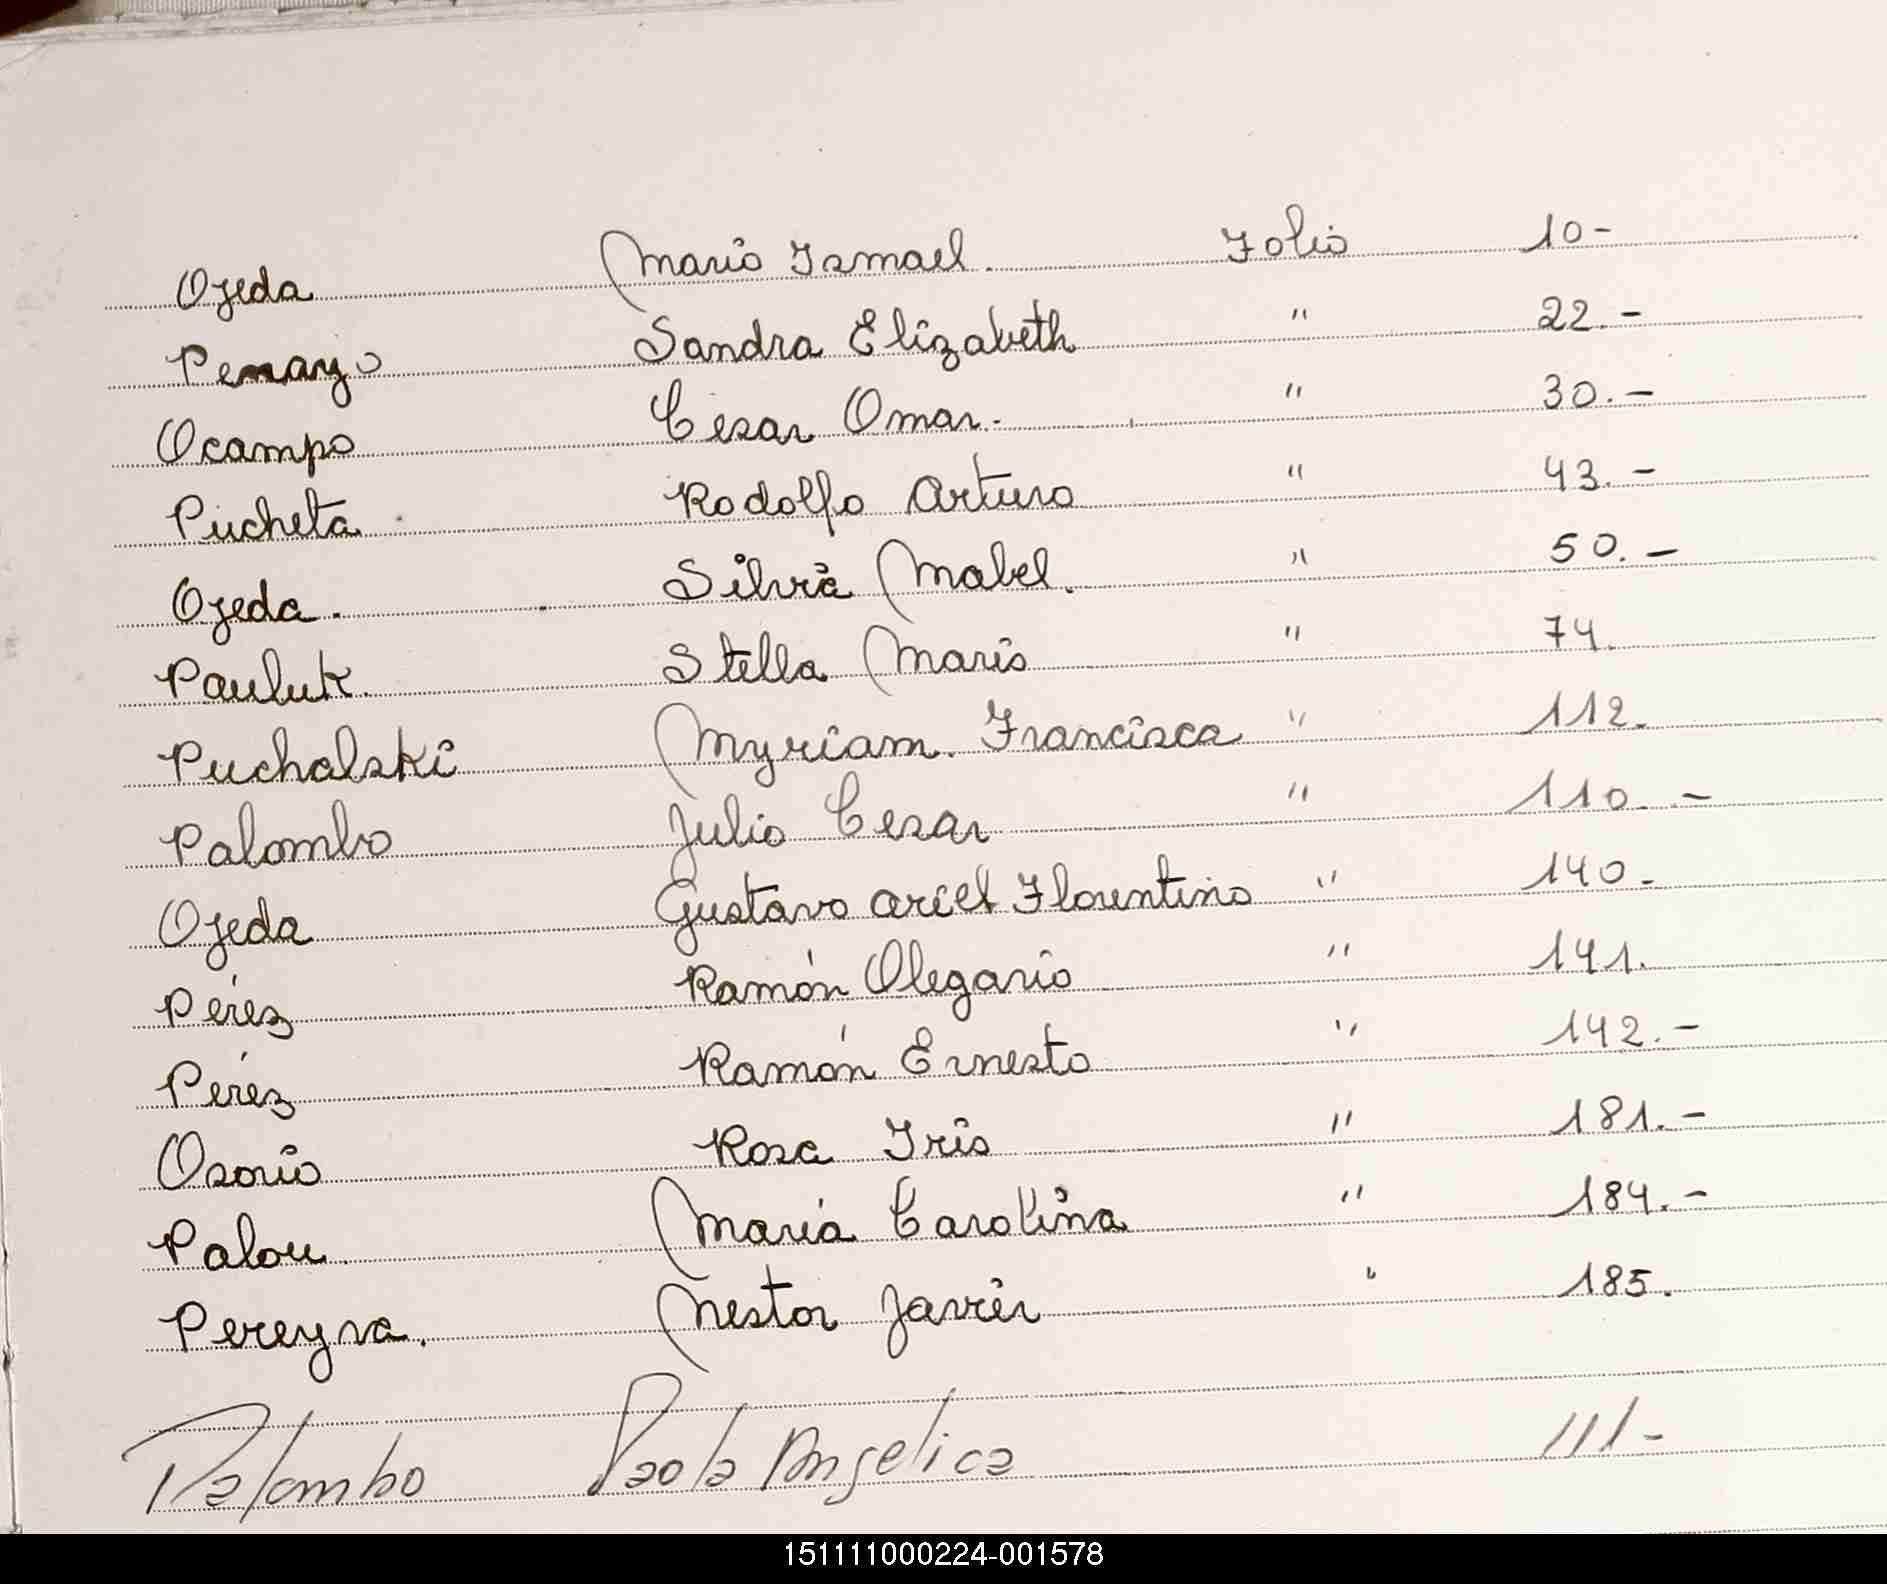 Ojeda Mario Ismael Folio 10-
Pemayo Sandra Elizabeth " 22.-
Ocampo Cesar Omar. " 30.-
Pucheta Rodolfo Arturo " 43.-
Ojeda. Silvia Mabel. " 50.-
Pauluk. Stella Maris " 74.
Puchalski Myriam. Francisca " 112.
Palombo Julio Cesar " 110.-
Ojeda Gustavo Ariel Florentino " 140-
Pérez Ramón Olegario " 141.
Pérez Ramón Ernesto " 142.-
Osorio Rosa Iris " 181.-
Palou. María Carolina " 184.-
Pereyra. Nestor Javier " 185.
Palombo Paola Angelica 111-
151111000224-001578